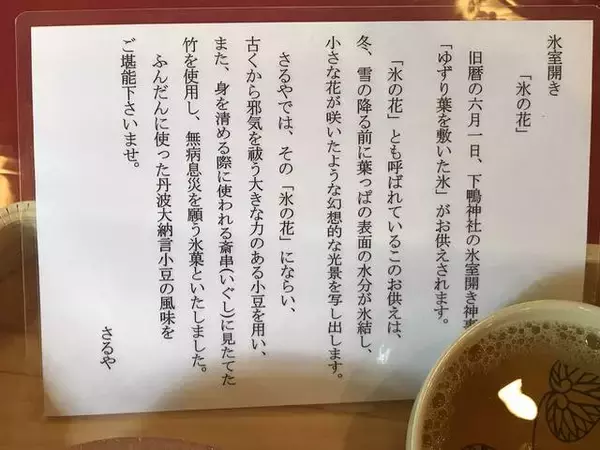 氷室開き
「氷の花」
旧暦の六月一日、下鴨神社の氷室開き神事
「ゆずり葉を敷いた氷」がお供えされます。
「氷の花」とも呼ばれているこのお供えは、
冬、雪の降る前に葉っぱの表面の水分が氷結し、
小さな花が咲いたような幻想的な光景を写し出します。
さるやでは、その「氷の花」にならい、
古くから邪気を祓う大きな力のある小豆を用い、
また、身を清める際に使われる斎串(いぐし)に見たてた
竹を使用し、無病息災を願う氷菓といたしました。
ふんだんに使った丹波大納言小豆の風味を
ご堪能下さいませ。
さるや